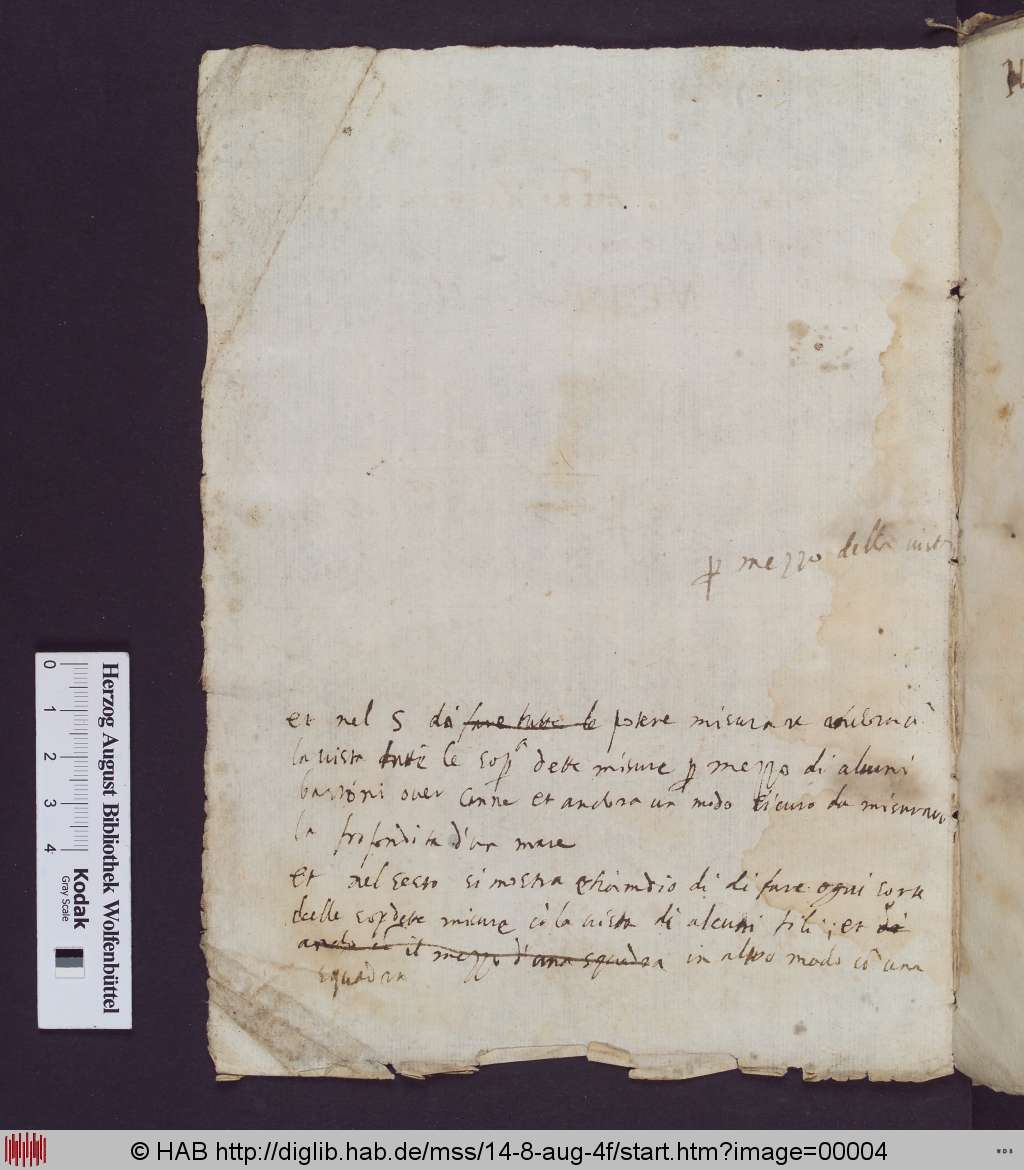 ꝑ mezzo della uista
et nel 5 di fare tutte le potere misurare anchora cō
la uista tutte le sopᵃ dette misure ꝑ mezzo di alcuni
bastoni ouer canne et anchora un modo sicuro da misurare
la profondita d'un mare
et nel sesto si mostra ethiamdio di di fare ogni sorte
delle sopᵃdette misure cō la uista di alcuni fili; et di
il mezzo d'una squadra in altro modo cō una
squadra
0 1 2 3 4
Herzog August Bibliothek Wolfenbüttel
Kodak
Gray Scale
© HAB http://diglib.hab.de/mss/14-8-aug-4f/start.htm?image=00004